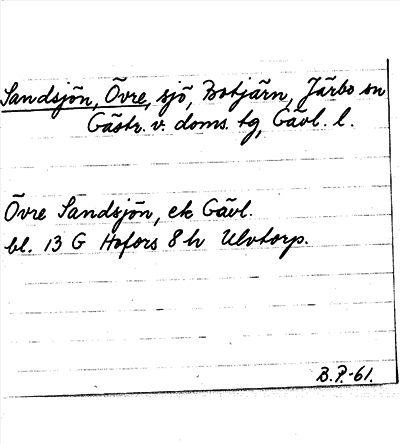 Sandsjön, Övre, sjö, Botjärn, Järbo sn
Gästr. v. doms. tg, Gävl. l.
Övre Sandsjön, ek Gävl.
bl. 13 G Hofors 8 h Ulvtorp.
B.P.-61.